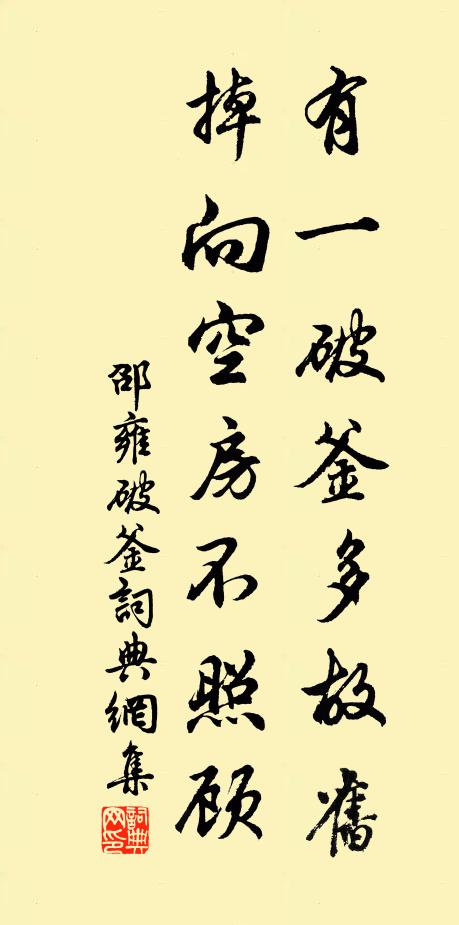 有一破釜多故舊
掉向空房不照顾
邵雍破釜詞典網集
詞典网印